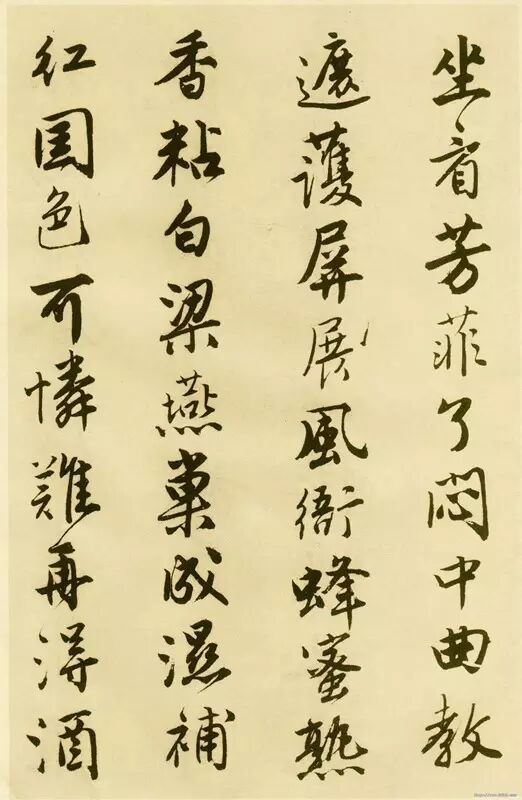 坐看芳菲了悶中曲教
遮護屏展風衙蜂蜜熟
香粘白梁燕巢成濕補
紅囯色可憐難再得酒